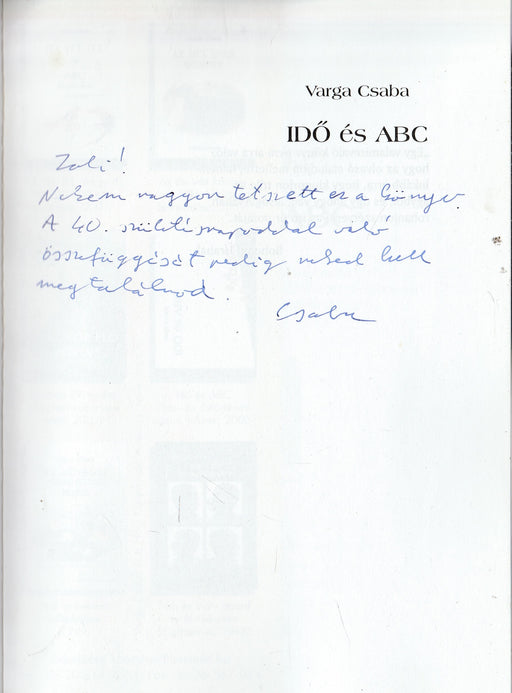 Varga Csaba
IDŐ és ABC
Zoli!
Nekem nagyon tetszett ez a könyv.
A 40. születésnapoddal való
összefüggését pedig neked kell
megtalálnod.
Csaba